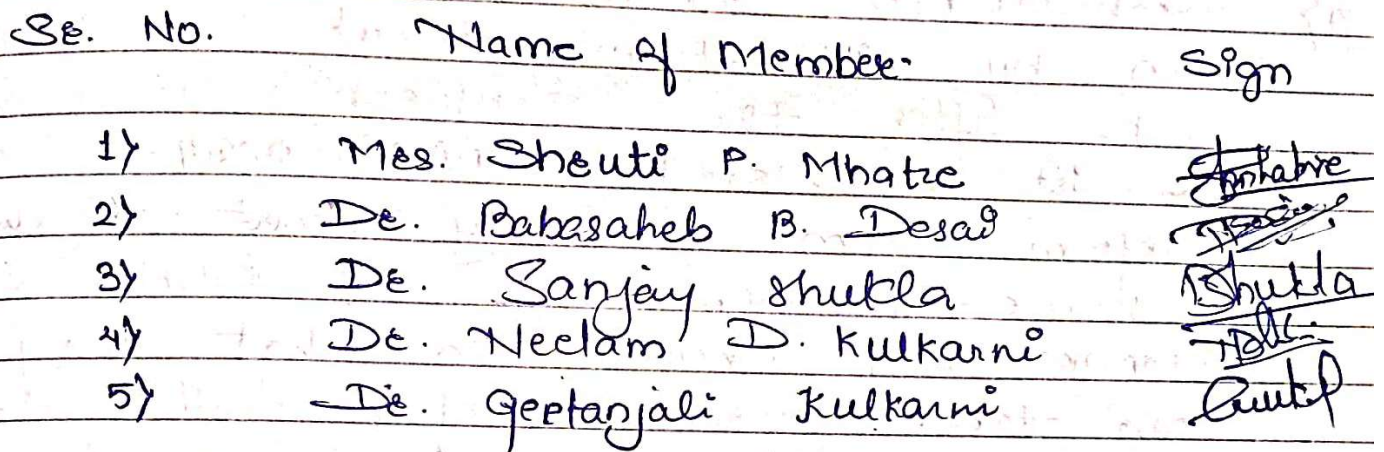 Sr. No. Name of Member Sign
1) Mrs. Shruti P. Mhatre SMhatre
2) Dr. Babasaheb B. Desai
3) Dr. Sanjay Shukla Shukla
4) Dr. Neelam D. Kulkarni
5) Dr. Geetanjali Kulkarni